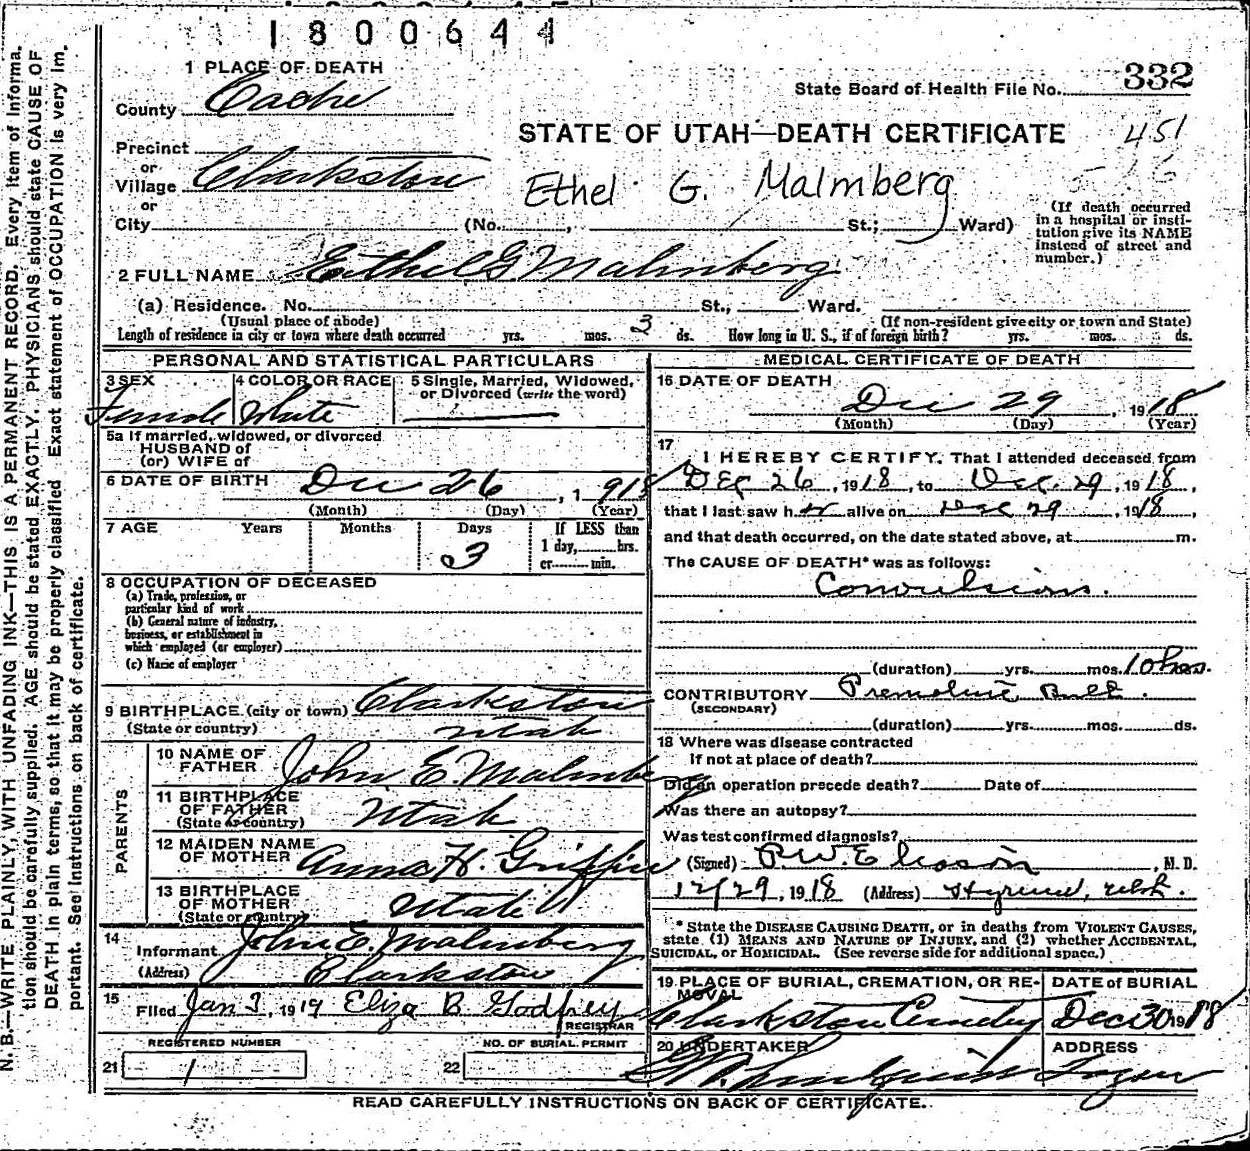 1800644
1 PLACE OF DEATH
County Cache
State Board of Health File No. 332
STATE OF UTAH—DEATH CERTIFICATE
451
Precinct
or
Village Clarkston
Ethel G. Malmberg
or
City (No. , St.; Ward)
(If death occurred in a hospital or institution give its NAME instead of street and number.)
2 FULL NAME Ethel G. Malmberg
(a) Residence. No. St., Ward.
(Usual place of abode) (If non-resident give city or town and State)
Length of residence in city or town where death occurred yrs. mos. 3 ds. How long in U. S., if of foreign birth? yrs. mos. ds.
PERSONAL AND STATISTICAL PARTICULARS
3 SEX 4 COLOR OR RACE 5 Single, Married, Widowed, or Divorced (write the word)
Female White
5a If married, widowed, or divorced
HUSBAND of
(or) WIFE of
6 DATE OF BIRTH Dec 26, 1918
(Month) (Day) (Year)
7 AGE Years Months Days If LESS than
3 1 day, hrs.
or min.
8 OCCUPATION OF DECEASED
(a) Trade, profession, or
particular kind of work
(b) General nature of industry,
business, or establishment in
which employed (or employer)
(c) Name of employer
9 BIRTHPLACE (city or town) Clarkston
(State or country) Utah
PARENTS
10 NAME OF FATHER John E. Malmberg
11 BIRTHPLACE OF FATHER
(State or country) Utah
12 MAIDEN NAME OF MOTHER Anna H. Griffin
13 BIRTHPLACE OF MOTHER
(State or country) Utah
14
Informant John E. Malmberg
(Address) Clarkston
15
Filed Jan 3, 1919 Eliza B Godfrey
REGISTRAR
REGISTERED NUMBER NO. OF BURIAL PERMIT
21 1 22
MEDICAL CERTIFICATE OF DEATH
16 DATE OF DEATH
Dec 29, 1918
(Month) (Day) (Year)
17
I HEREBY CERTIFY, That I attended deceased from
Dec 26, 1918, to Dec. 29, 1918,
that I last saw her alive on Dec 29, 1918,
and that death occurred, on the date stated above, at m.
The CAUSE OF DEATH* was as follows:
Convulsions.
(duration) yrs. mos. 10 hrs.
CONTRIBUTORY
(SECONDARY)
(duration) yrs. mos. ds.
18 Where was disease contracted
If not at place of death?
Did an operation precede death? Date of
Was there an autopsy?
Was test confirmed diagnosis?
(Signed) P.W. Eliason, M. D.
12/29, 1918 (Address) Hyrum, Utah.
* State the DISEASE CAUSING DEATH, or in deaths from VIOLENT CAUSES,
state (1) MEANS AND NATURE OF INJURY, and (2) whether ACCIDENTAL,
SUICIDAL, or HOMICIDAL. (See reverse side for additional space.)
19 PLACE OF BURIAL, CREMATION, OR REMOVAL DATE of BURIAL
Clarkston Cemetery Dec 30 1918
20 UNDERTAKER ADDRESS
Logan
READ CAREFULLY INSTRUCTIONS ON BACK OF CERTIFICATE.
N. B.—WRITE PLAINLY, WITH UNFADING INK—THIS IS A PERMANENT RECORD. Every item of informa-
tion should be carefully supplied. AGE should be stated EXACTLY. PHYSICIANS should state CAUSE OF
DEATH in plain terms, so that it may be properly classified. Exact statement of OCCUPATION is very im-
portant. See instructions on back of certificate.